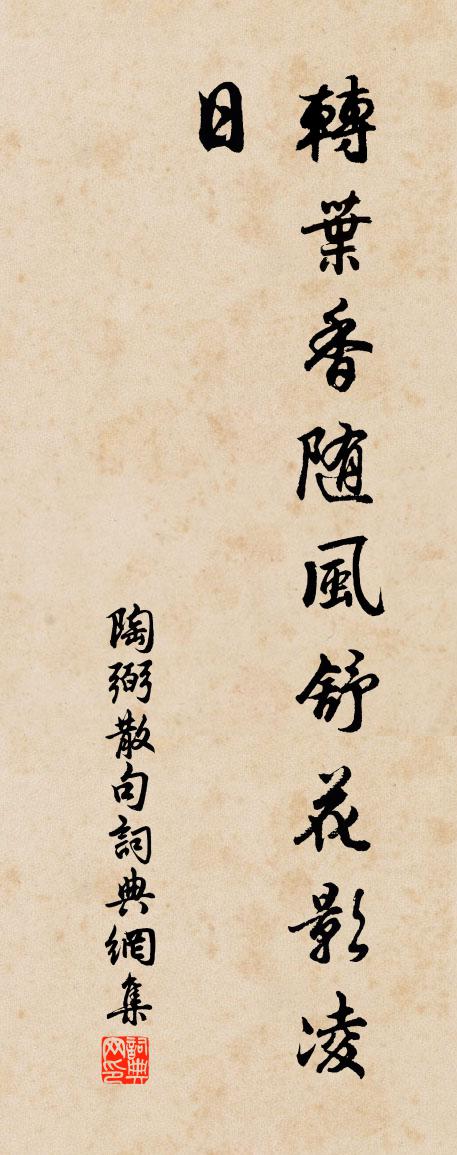 轉葉香随風舒花影凌
日
陶弼散句詞典網集
詞典网印